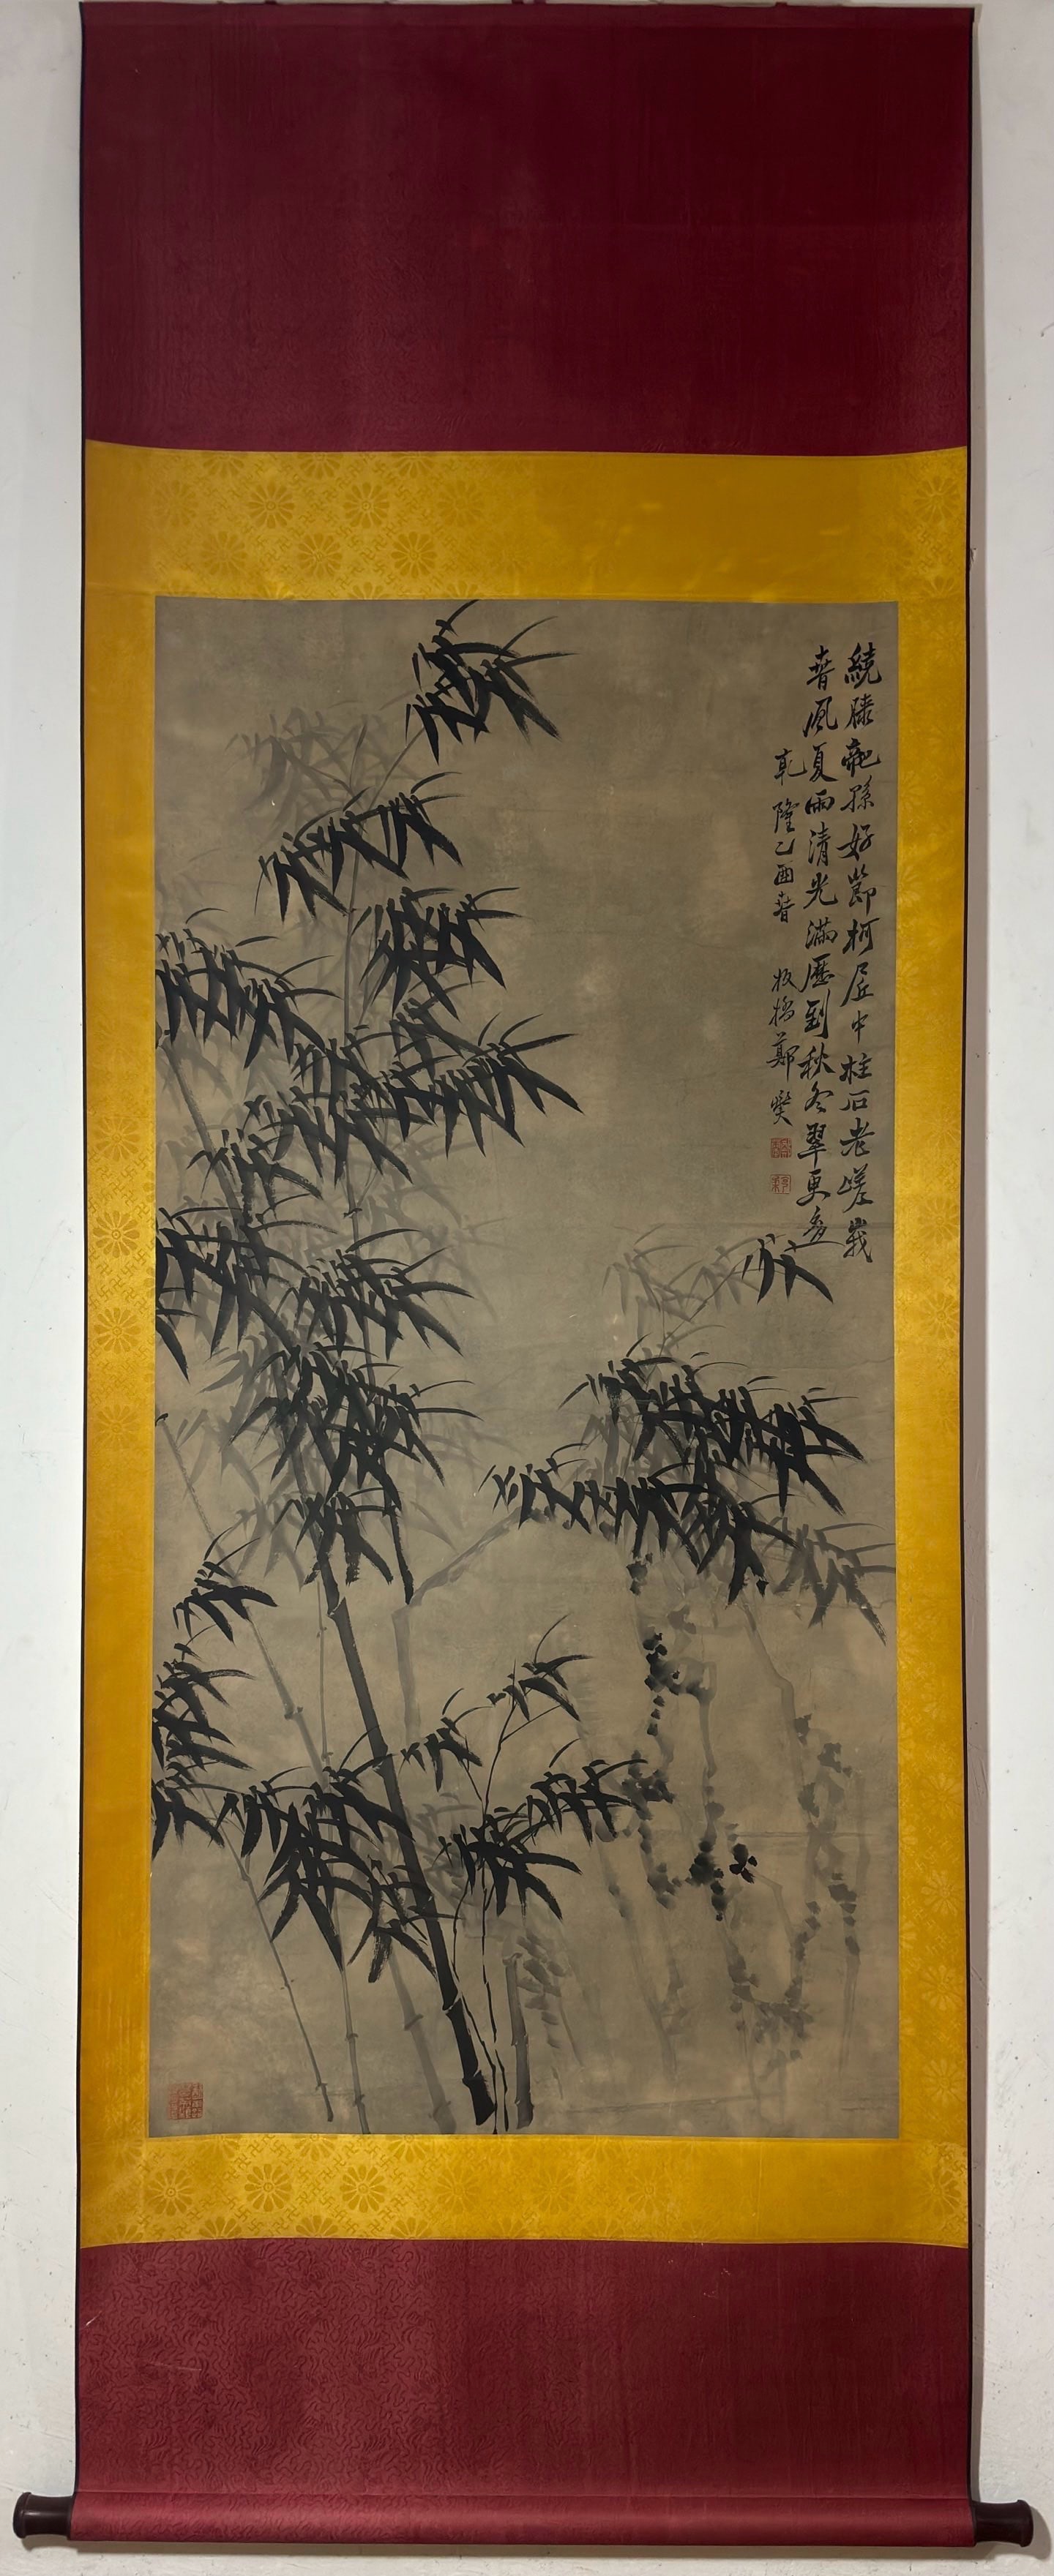 繞膝龍孫好節柯居中柱石老嵯峩
春風夏雨清光滿歷到秋冬翠更多
乾隆乙酉春 板橋鄭燮